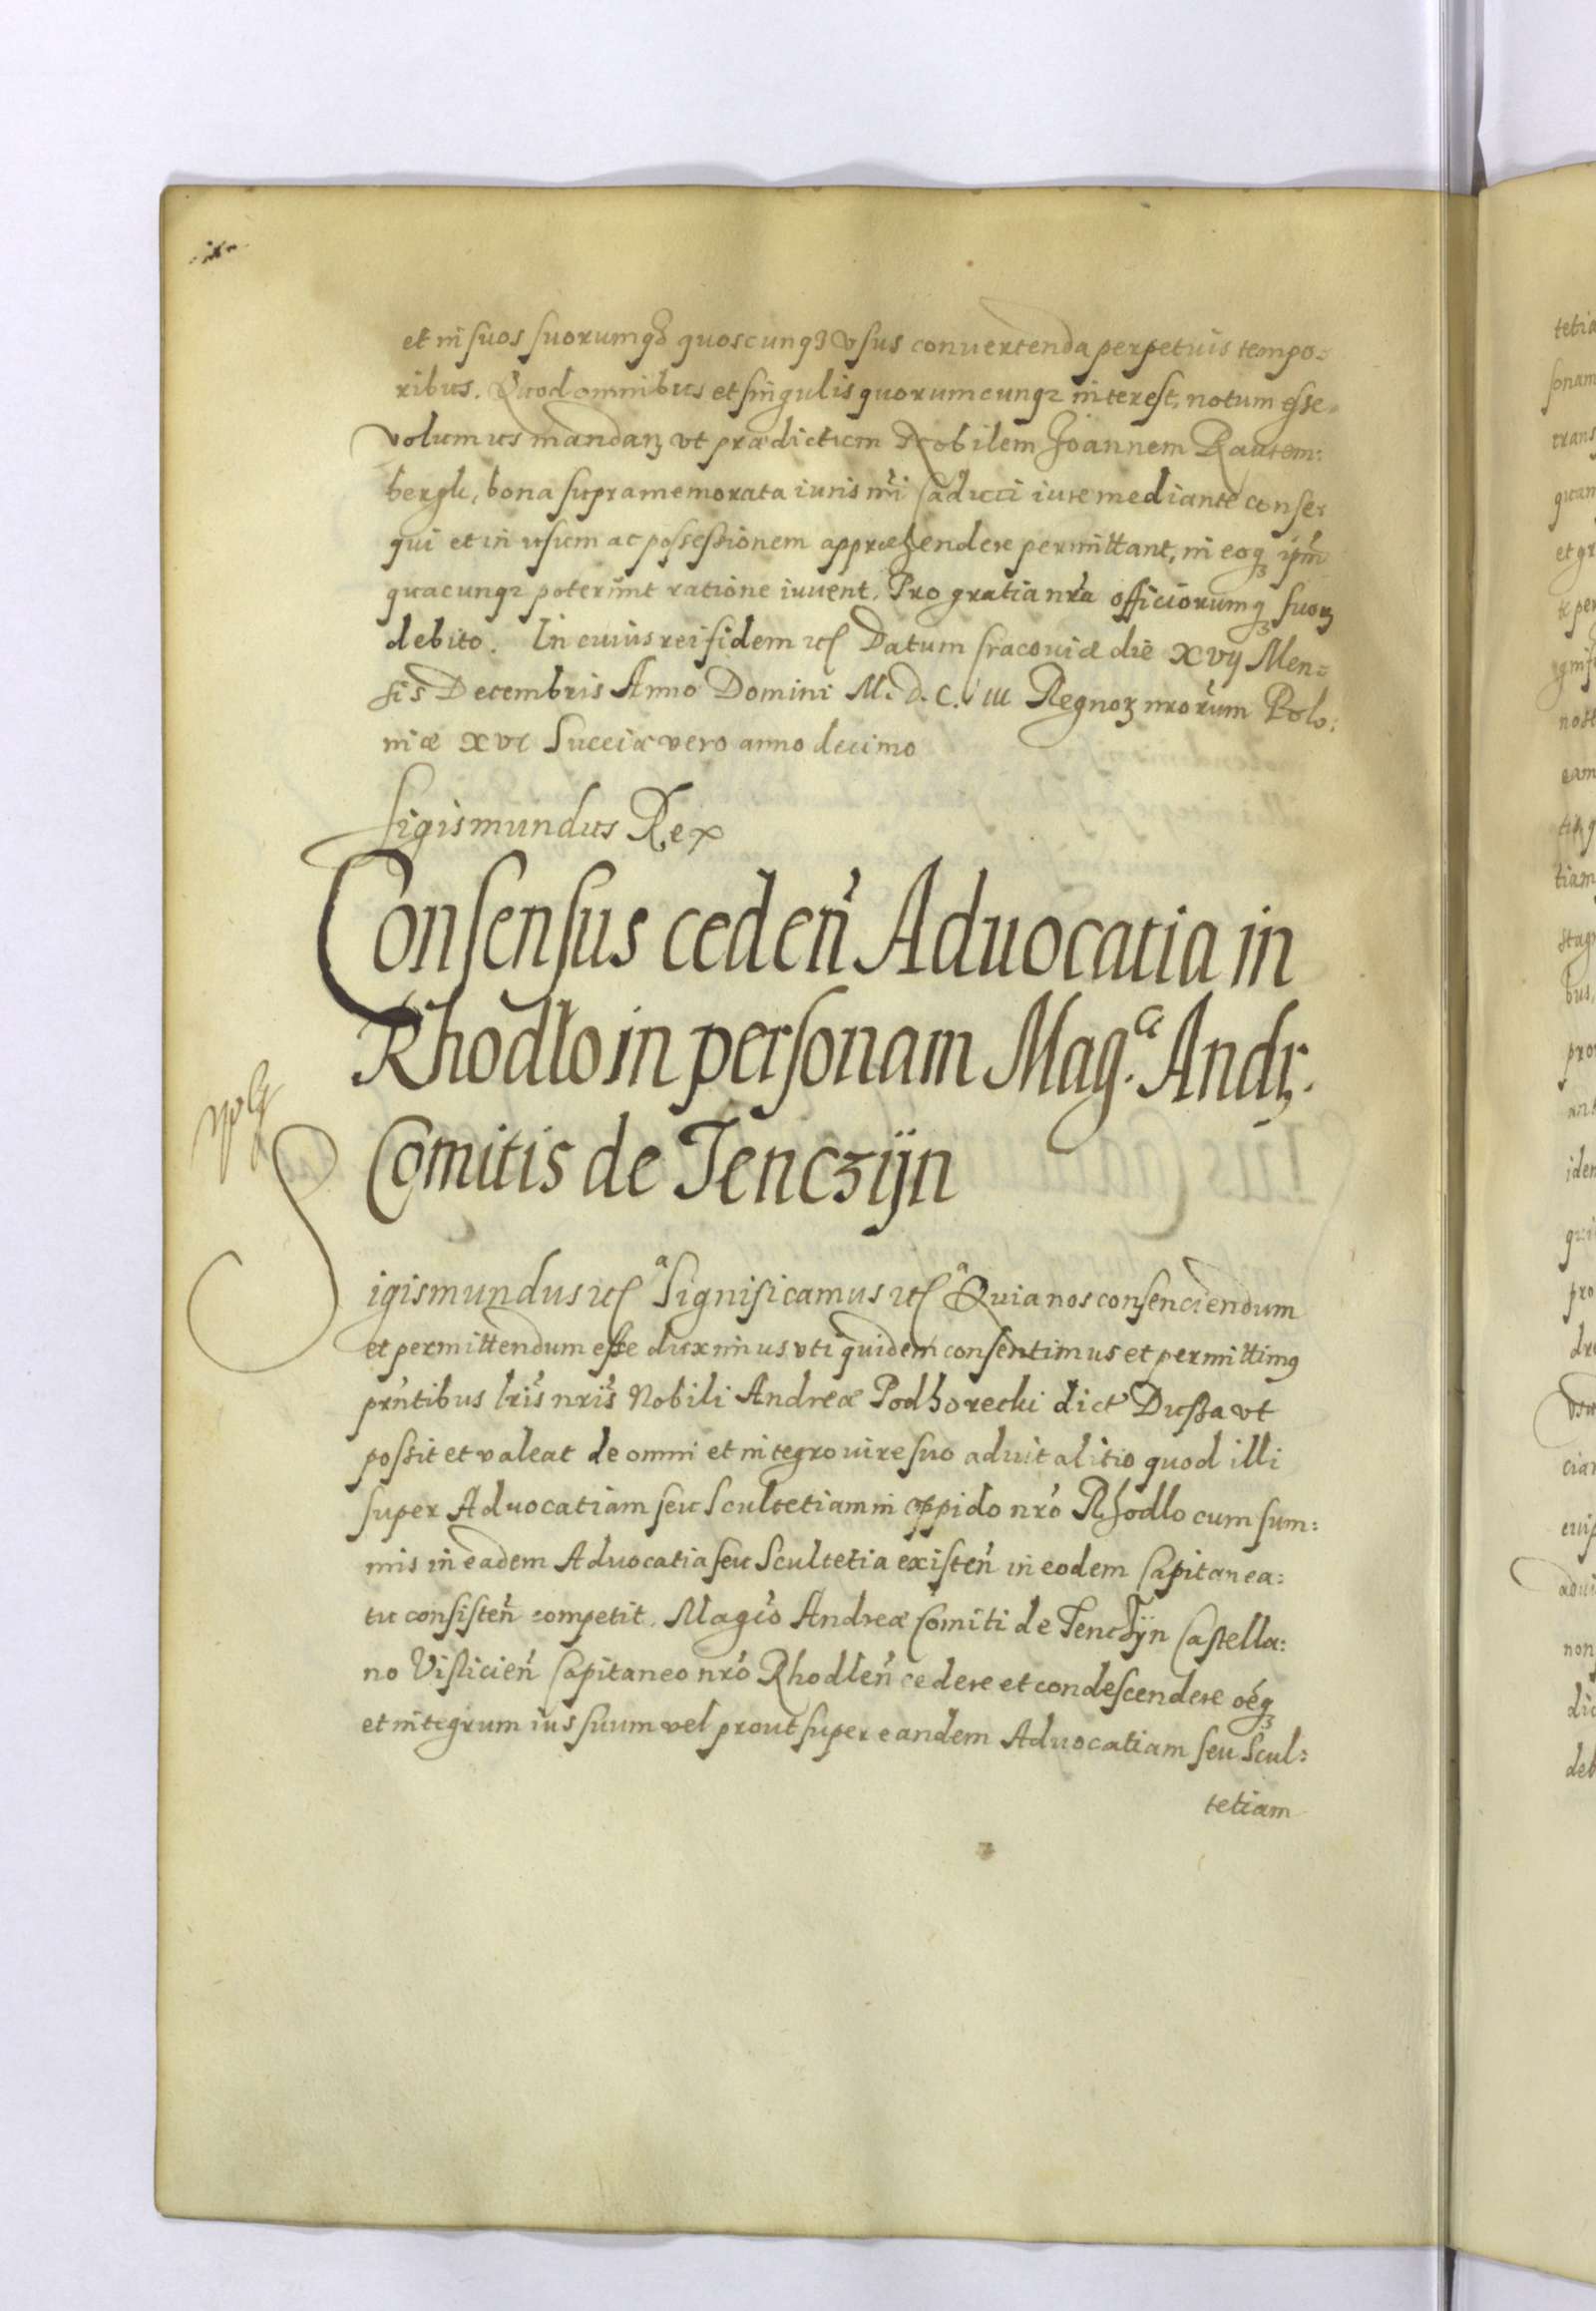 et in suos suorumqȝ quoscunqȝ vsus conuertenda perpetuis tempo=
ribus. Quod omnibus et singulis quorumcunqȝ interest, notum esse
volumus mandanȝ vt prædictum Nobilem Joannem Rautem:
bergk, bona supramemorata iuris nr̃i Caduci iure mediante conse=
qui et in vsum ac possessionem appræhendere permittant, in eoqȝ ip̃m
quacunqȝ poterunt ratione iuuent. Pro gratia nr̃a officiorumqȝ suoꝝ
debito. In cuius rei fidem etc Datum Cracouiæ die XVij Men=
sis Decembris Anno Domini M. D. C. iii Regnoꝝ nrorum Polo:
niæ XVI Sueciæ vero anno decimo
Sigismundus Rex
Consensus ceden̄ Aduocatia in
Rhodło in personam Mag.ci Andȝ.
Comitis de Tenczÿn
Sigismundus etc Significamus etc Quia nos consenciendum
et permittendum esse duximus vti quidem consentimus et permittimꝰ
pr̃ntibus lr̃is nr̃is Nobili Andreæ Podhorecki dict Dussa vt
possit et valeat de omni et integro iure suo aduitalitio quod illi
super Aduocatiam seu Scultetiam in oppido nr̃o Rhodlo cum sum:
mis in eadem Aduocatia seu Scultetia existen̄ in eodem Capitanea:
tu consisten̄ competit. Magc̃o Andreæ Comiti de Tenczÿn Castella:
no Vislicien̄ Capitaneo nr̃o Rhodlen̄ cedere et condescendere oẽqȝ
et integrum ius suum vel prout super eandem Aduocatiam seu Scul:
tetiam